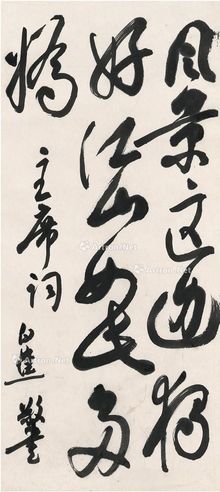 风景这边独
好江山如此多
娇
主席词
Artron.Net